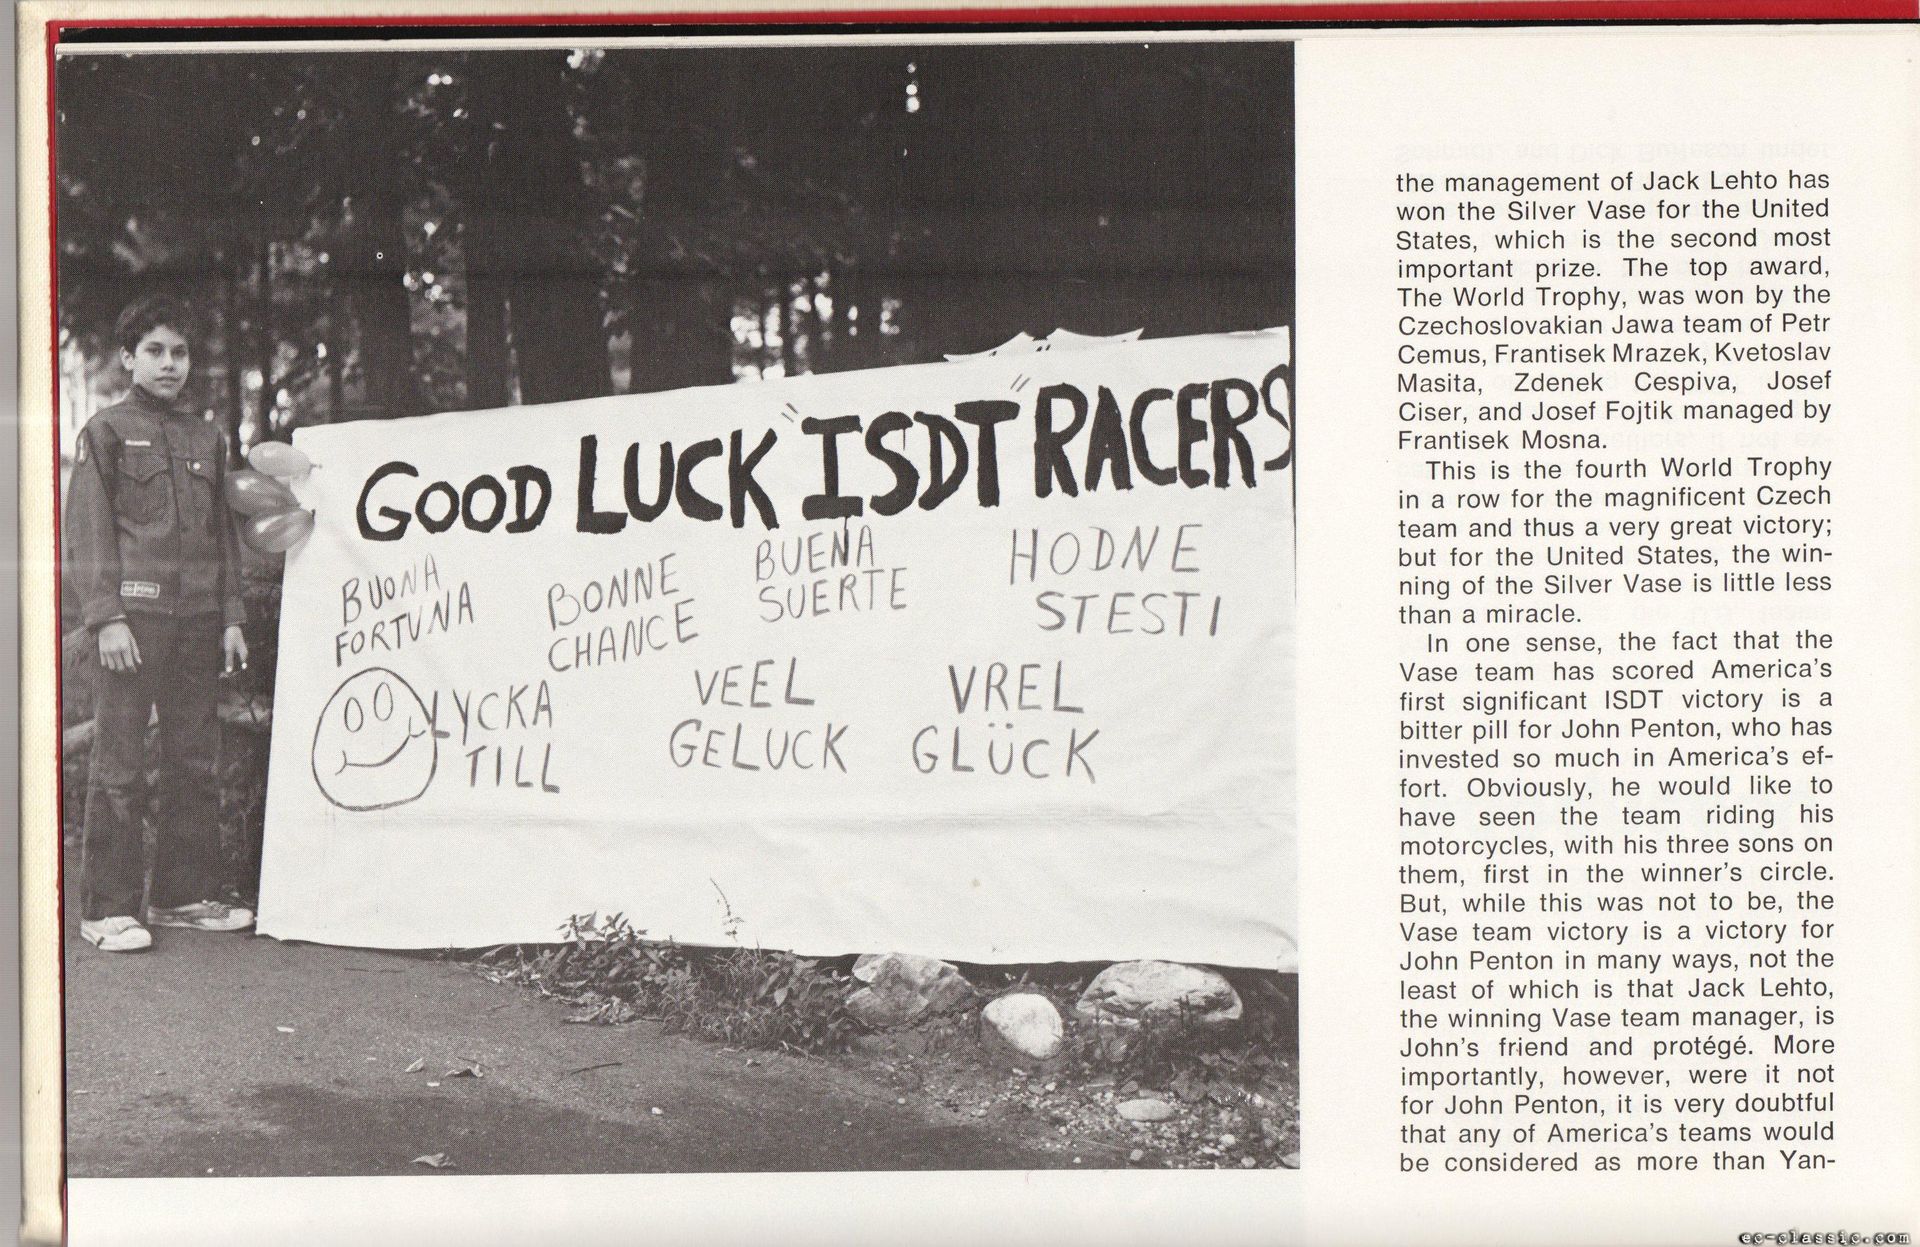 GOOD LUCK "ISDT" RACERS
BUONA
FORTUNA
BONNE
CHANCE
BUENA
SUERTE
HODNE
STESTI
LYCKA
TILL
VEEL
GELUCK
VREL
GLÜCK
the management of Jack Lehto has
won the Silver Vase for the United
States, which is the second most
important prize. The top award,
The World Trophy, was won by the
Czechoslovakian Jawa team of Petr
Cemus, Frantisek Mrazek, Kvetoslav
Masita, Zdenek Cespiva, Josef
Ciser, and Josef Fojtik managed by
Frantisek Mosna.
This is the fourth World Trophy
in a row for the magnificent Czech
team and thus a very great victory;
but for the United States, the win-
ning of the Silver Vase is little less
than a miracle.
In one sense, the fact that the
Vase team has scored America's
first significant ISDT victory is a
bitter pill for John Penton, who has
invested so much in America's ef-
fort. Obviously, he would like to
have seen the team riding his
motorcycles, with his three sons on
them, first in the winner's circle.
But, while this was not to be, the
Vase team victory is a victory for
John Penton in many ways, not the
least of which is that Jack Lehto,
the winning Vase team manager, is
John's friend and protégé. More
importantly, however, were it not
for John Penton, it is very doubtful
that any of America's teams would
be considered as more than Yan-
ec-classic.com